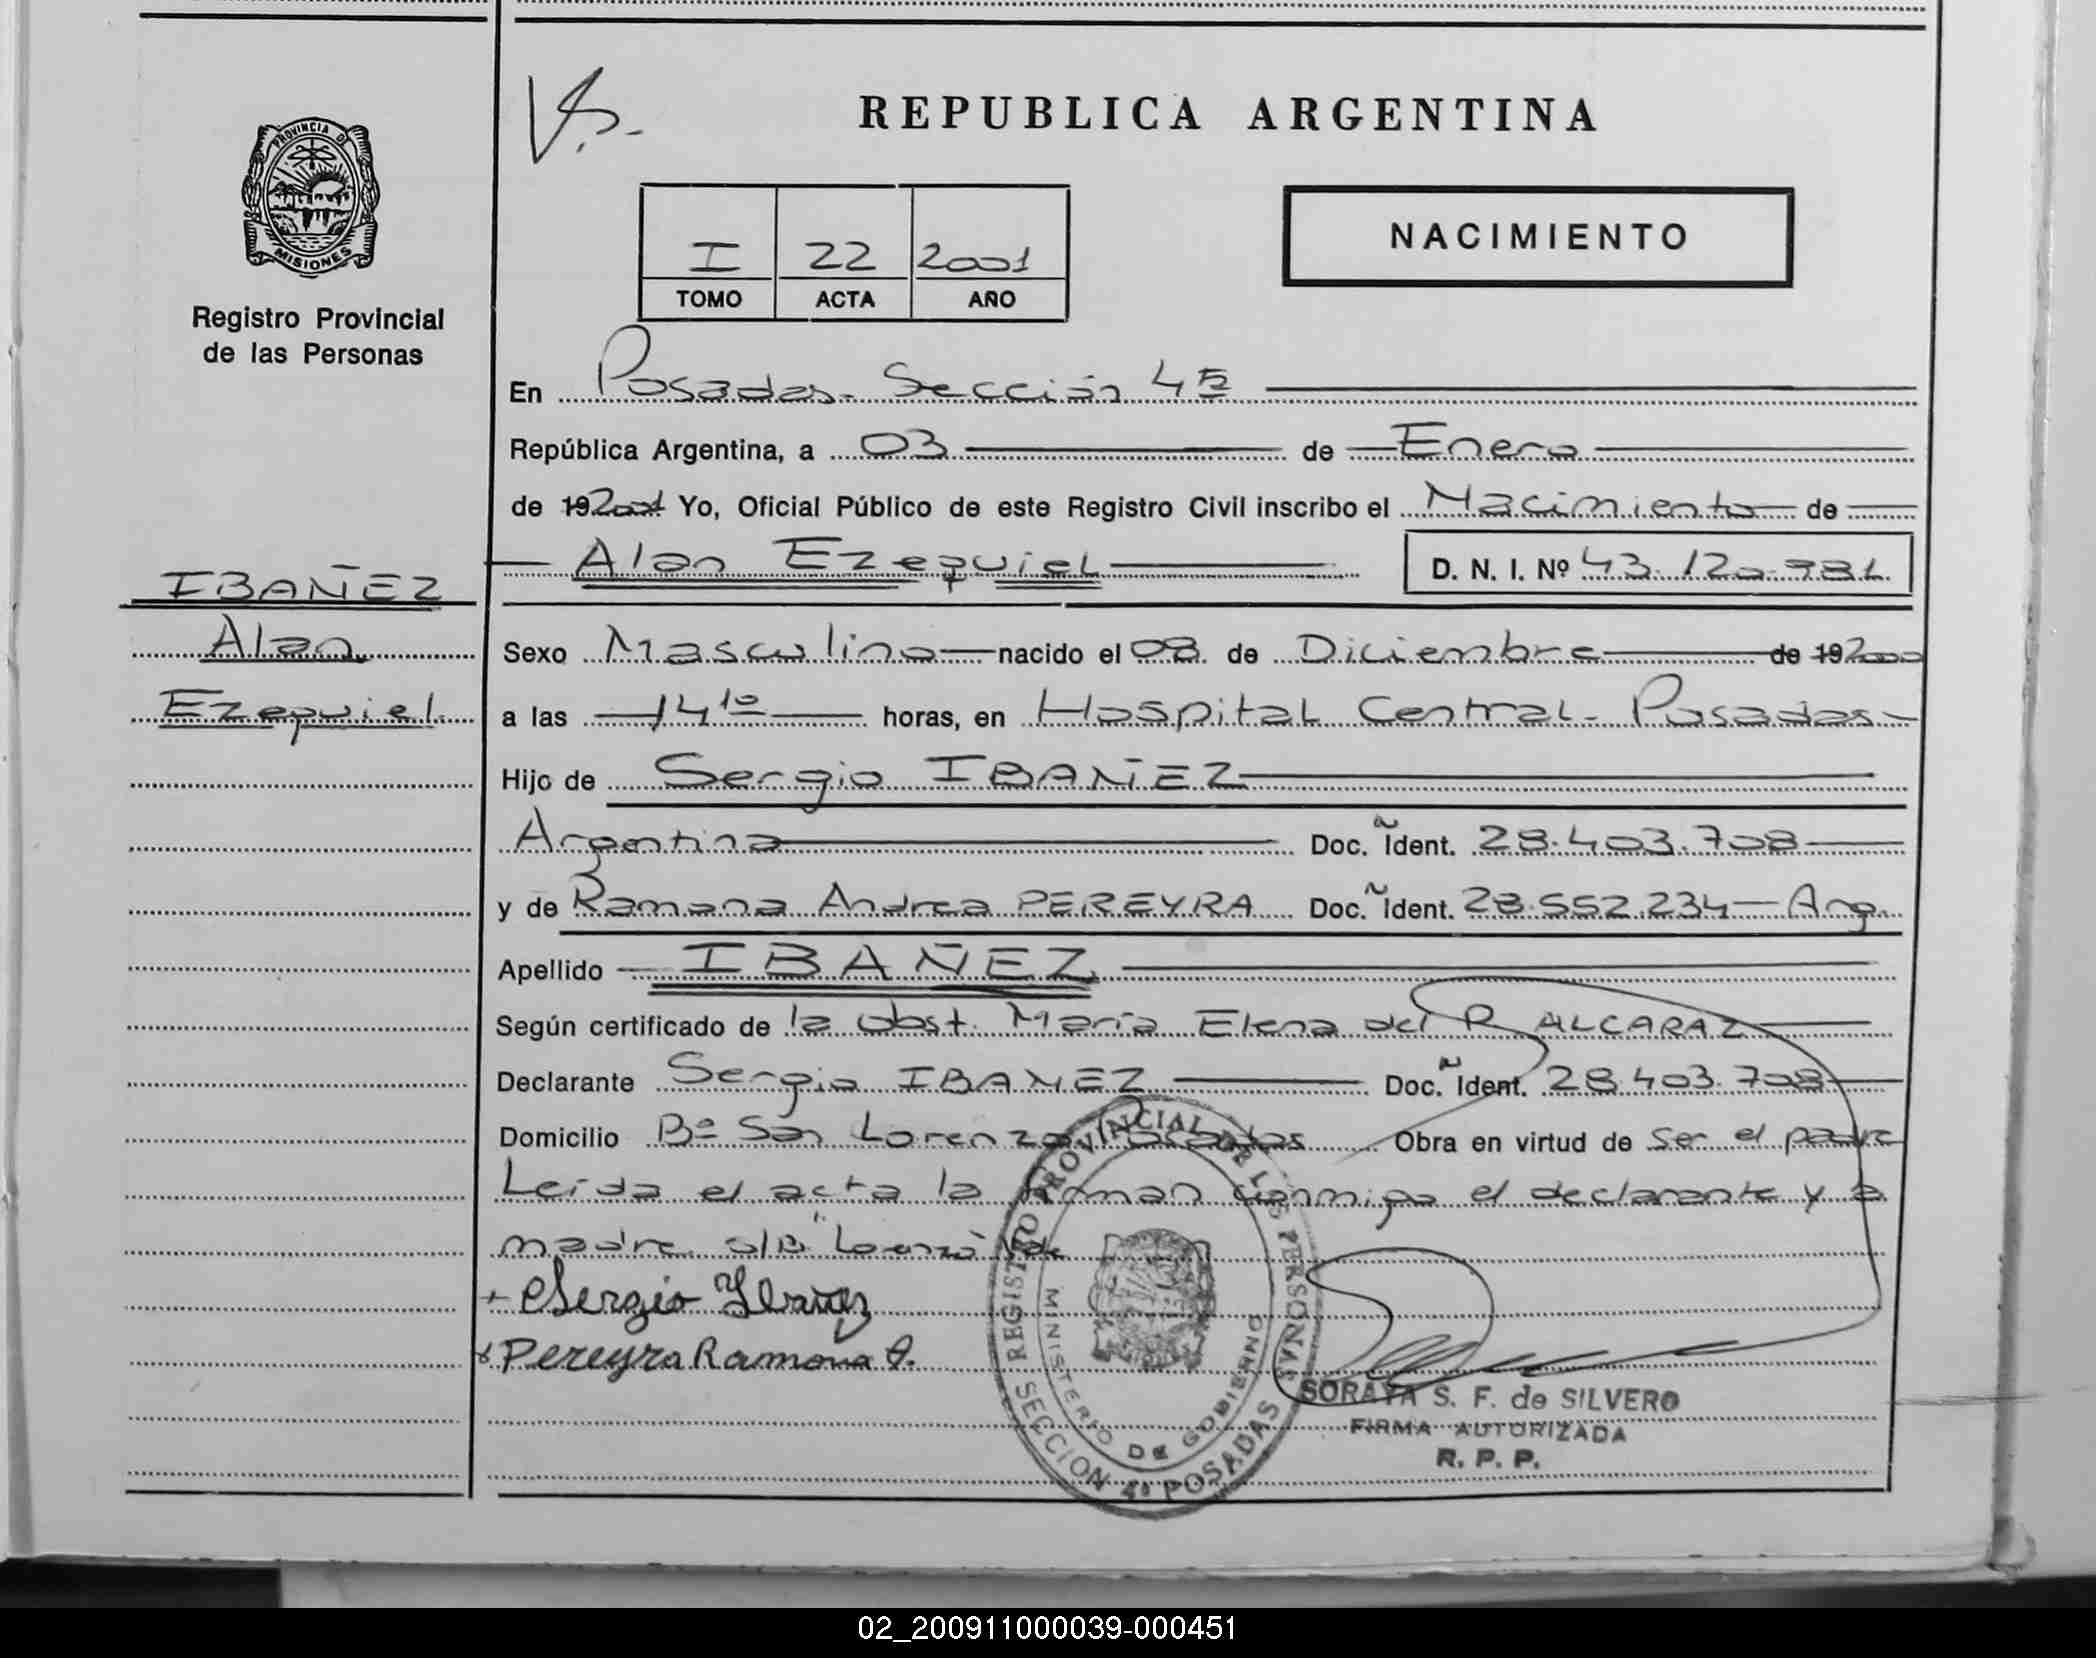 PROVINCIA DE
MISIONES
Registro Provincial
de las Personas
IBAÑEZ
Alan
Ezequiel
Vs.
REPUBLICA ARGENTINA
I 22 2001
TOMO ACTA AÑO
NACIMIENTO
En Posadas - Sección 4ª
República Argentina, a 03 de Enero
de 192001 Yo, Oficial Público de este Registro Civil inscribo el Nacimiento de
Alan Ezequiel D. N. I. Nº 43.120.981
Sexo Masculino nacido el 08 de Diciembre de 192000
a las 14 10 horas, en Hospital Central - Posadas -
Hijo de Sergio IBAÑEZ
Argentina Doc. Ident. 28.403.708
y de Ramona Andrea PEREYRA Doc. Ident. 28.552.234 - Arg.
Apellido IBAÑEZ
Según certificado de la Obst. María Elena del R. ALCARAZ
Declarante Sergio IBAÑEZ Doc. Ident. 28.403.708
Domicilio Bº San Lorenzo Posadas Obra en virtud de ser el padre
Leída el acta la firman conmigo el declarante y la
madre
+ Sergio Ibañez
x Pereyra Ramona A.
REGISTRO PROVINCIAL DE LAS PERSONAS
MINISTERIO DE GOBIERNO
SECCION 4ª POSADAS
SORAYA S. F. de SILVERO
FIRMA AUTORIZADA
R. P. P.
02_200911000039-000451